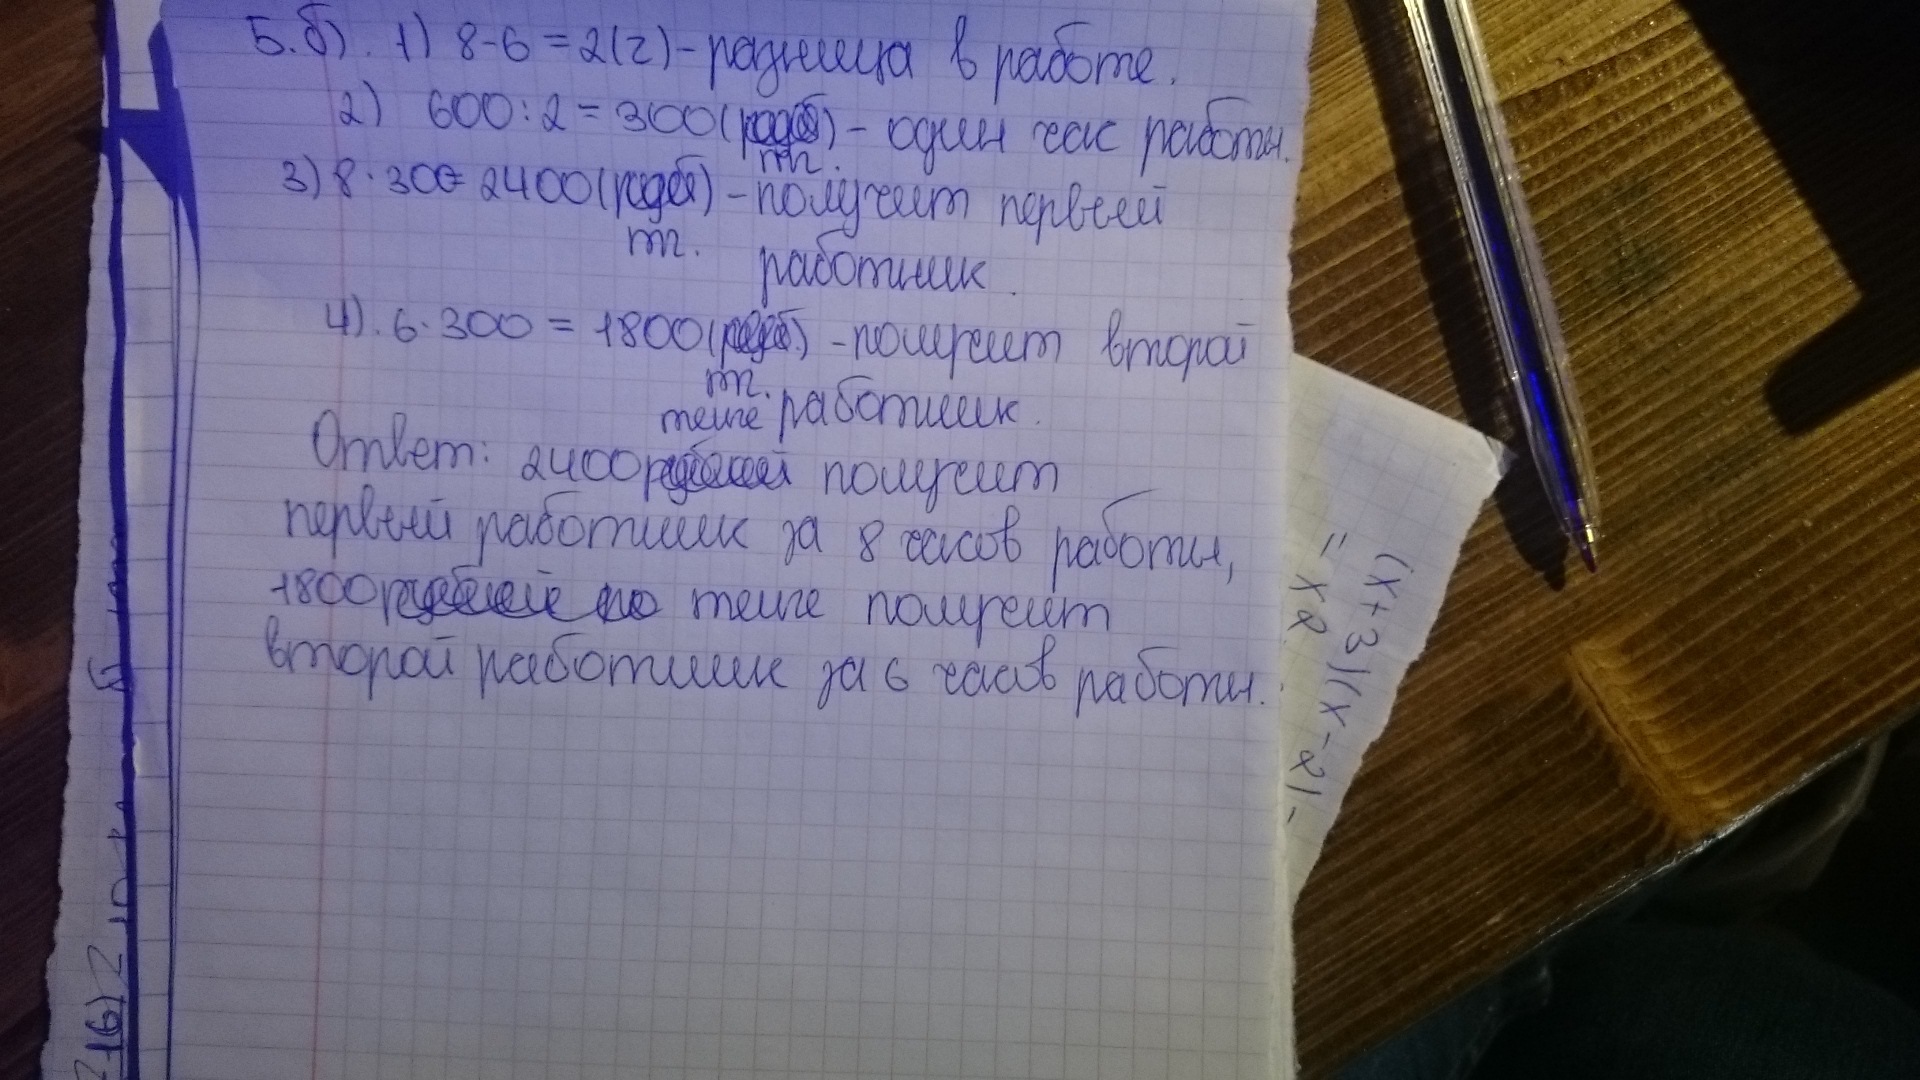 5.б). 1) 8-6=2(г)-разница в работе.
2) 600:2=300( ) - один час работы.
тг.
3) 8·300=2400( ) - получит первый
тг.
работник.
4). 6·300=1800( ) - получит второй
тг.
работник.
тенге
Ответ: 2400 получит
первый работник за 8 часов работы,
1800 тенге получит
второй работник за 6 часов работы.
(x+3)(x-2)-
= x2